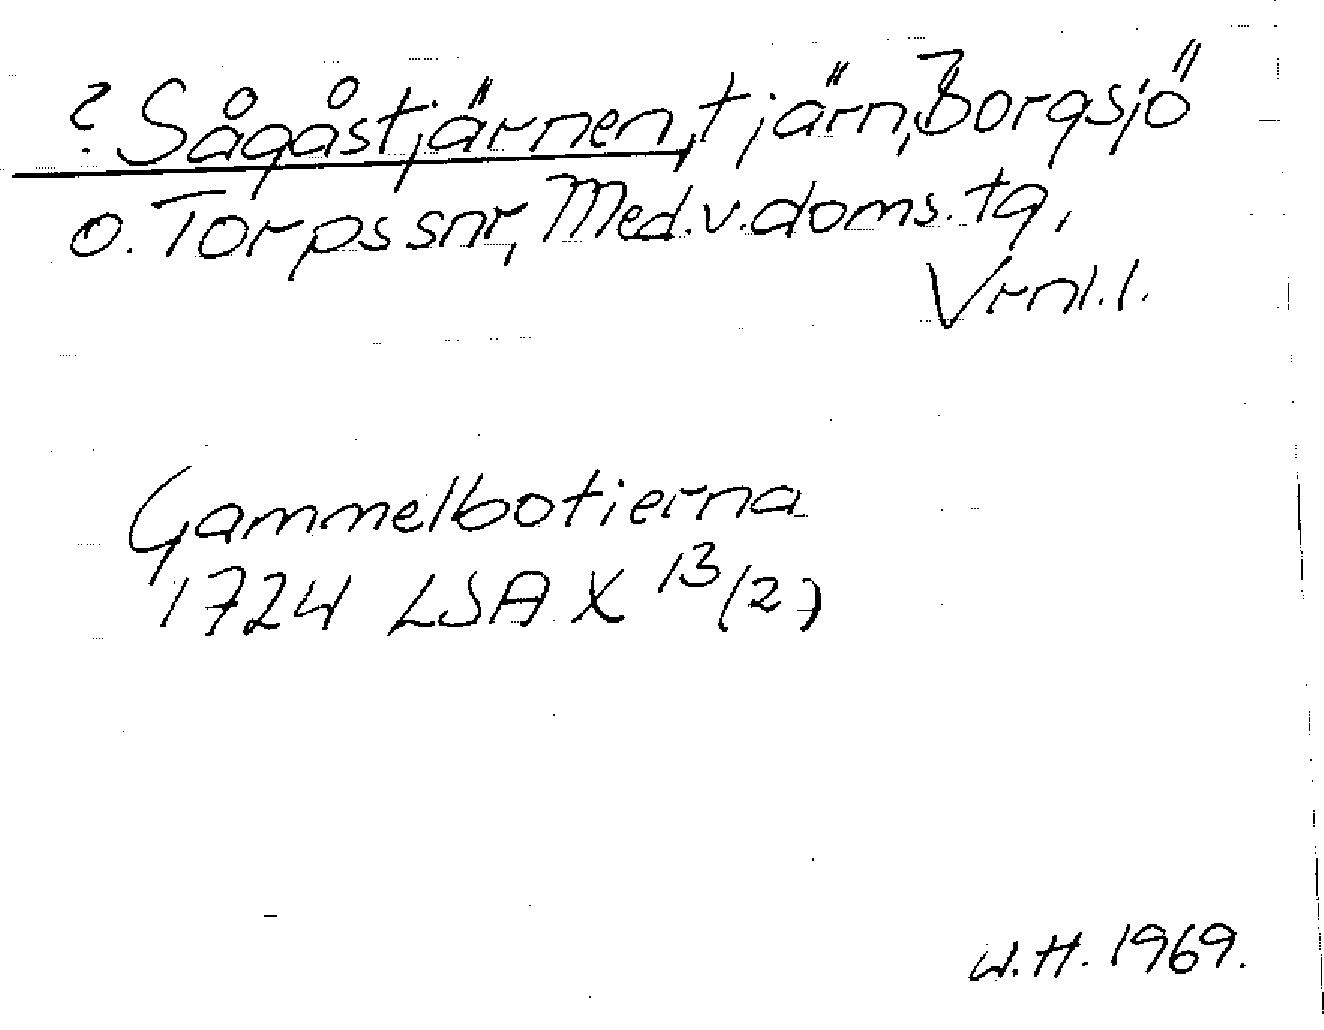 ? Sågåstjärnen, tjärn, Borgsjö
o. Torps snr, Med.v.doms.tg,
Vrnl.l.
Gammelbotierna
1724 LSA X 13/(2)
W.H. 1969.